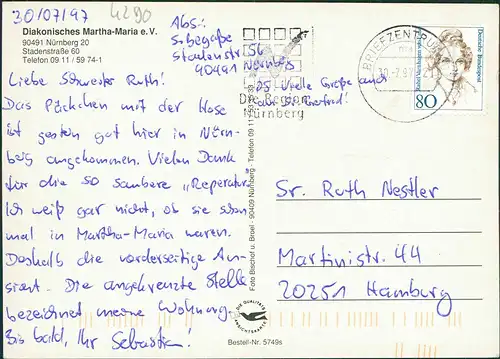 30/07/97
4290
Diakonisches Martha-Maria e.V.
90491 Nürnberg 20
Stadenstraße 60
Telefon 09 11 / 59 74-1
Abs.:
90491 Nürnberg
Liebe Schwester Ruth!
Das Päckchen mit der Hose
ist gestern gut hier in Nürn-
berg angekommen. Vielen Dank
für die so saubere „Reperatur“
Ich weiß gar nicht, ob sie schon
mal in Martha-Maria waren.
Deshalb die vorderseitige An-
sicht. Die angekreuzte Stelle
bezeichnet meine Wohnung.
Bis bald, Ihr Sebastian!
PS Viele Grüße auch
an Sr.
Die Region
Nürnberg
BRIEFZENTRUM
Deutsche Bundespost
80
Sr. Ruth Nestler
Martinistr. 44
20251 Hamburg
Foto Bischof u. Broel · 90409 Nürnberg · Telefon 09 11
DIE QUALITÄTS
ANSICHTSKARTE
Bestell-Nr. 5749s